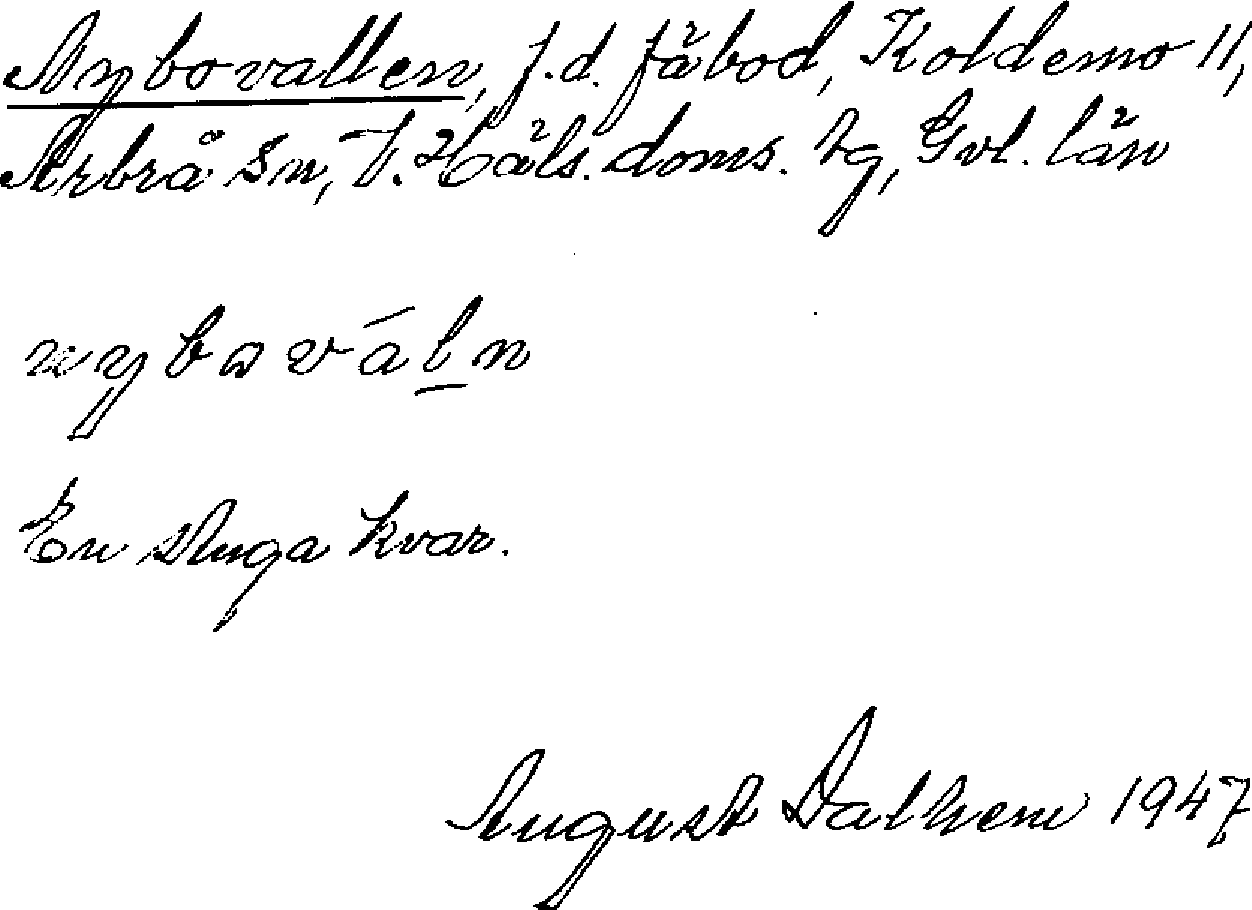 Nybovallen, f.d. fäbod, Koldemo 11,
Arbrå sn, V. Häls. doms. tg, Gvl. län
nybováln
En stuga kvar.
August Dalhem 1947